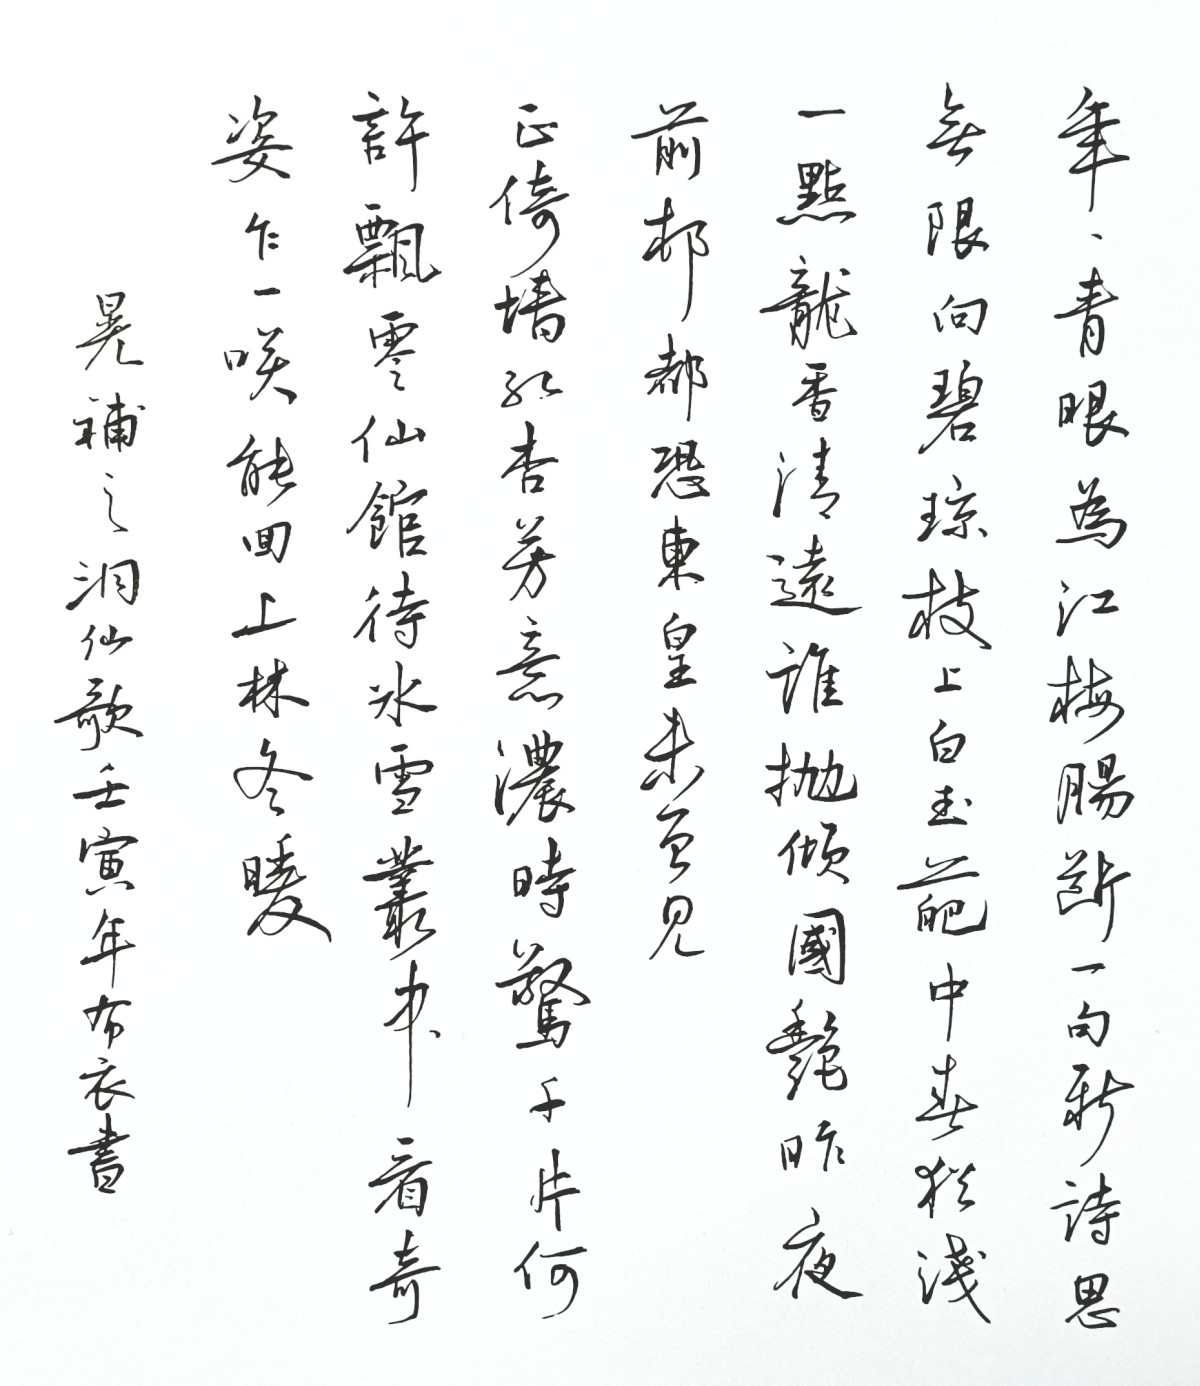 年、青眼為江梅腸斷一句新詩思
無限向碧瓊枝上白玉葩中春猶淺
一點龍香清遠誰抛傾國艷昨夜
前邨都恐東皇未曾見
正倚墻紅杏芳意濃時驚千片何
許飄零仙館待冰雪叢中看奇
姿乍一咲能回上林冬暖
晃補之洞仙歌壬寅年布衣書